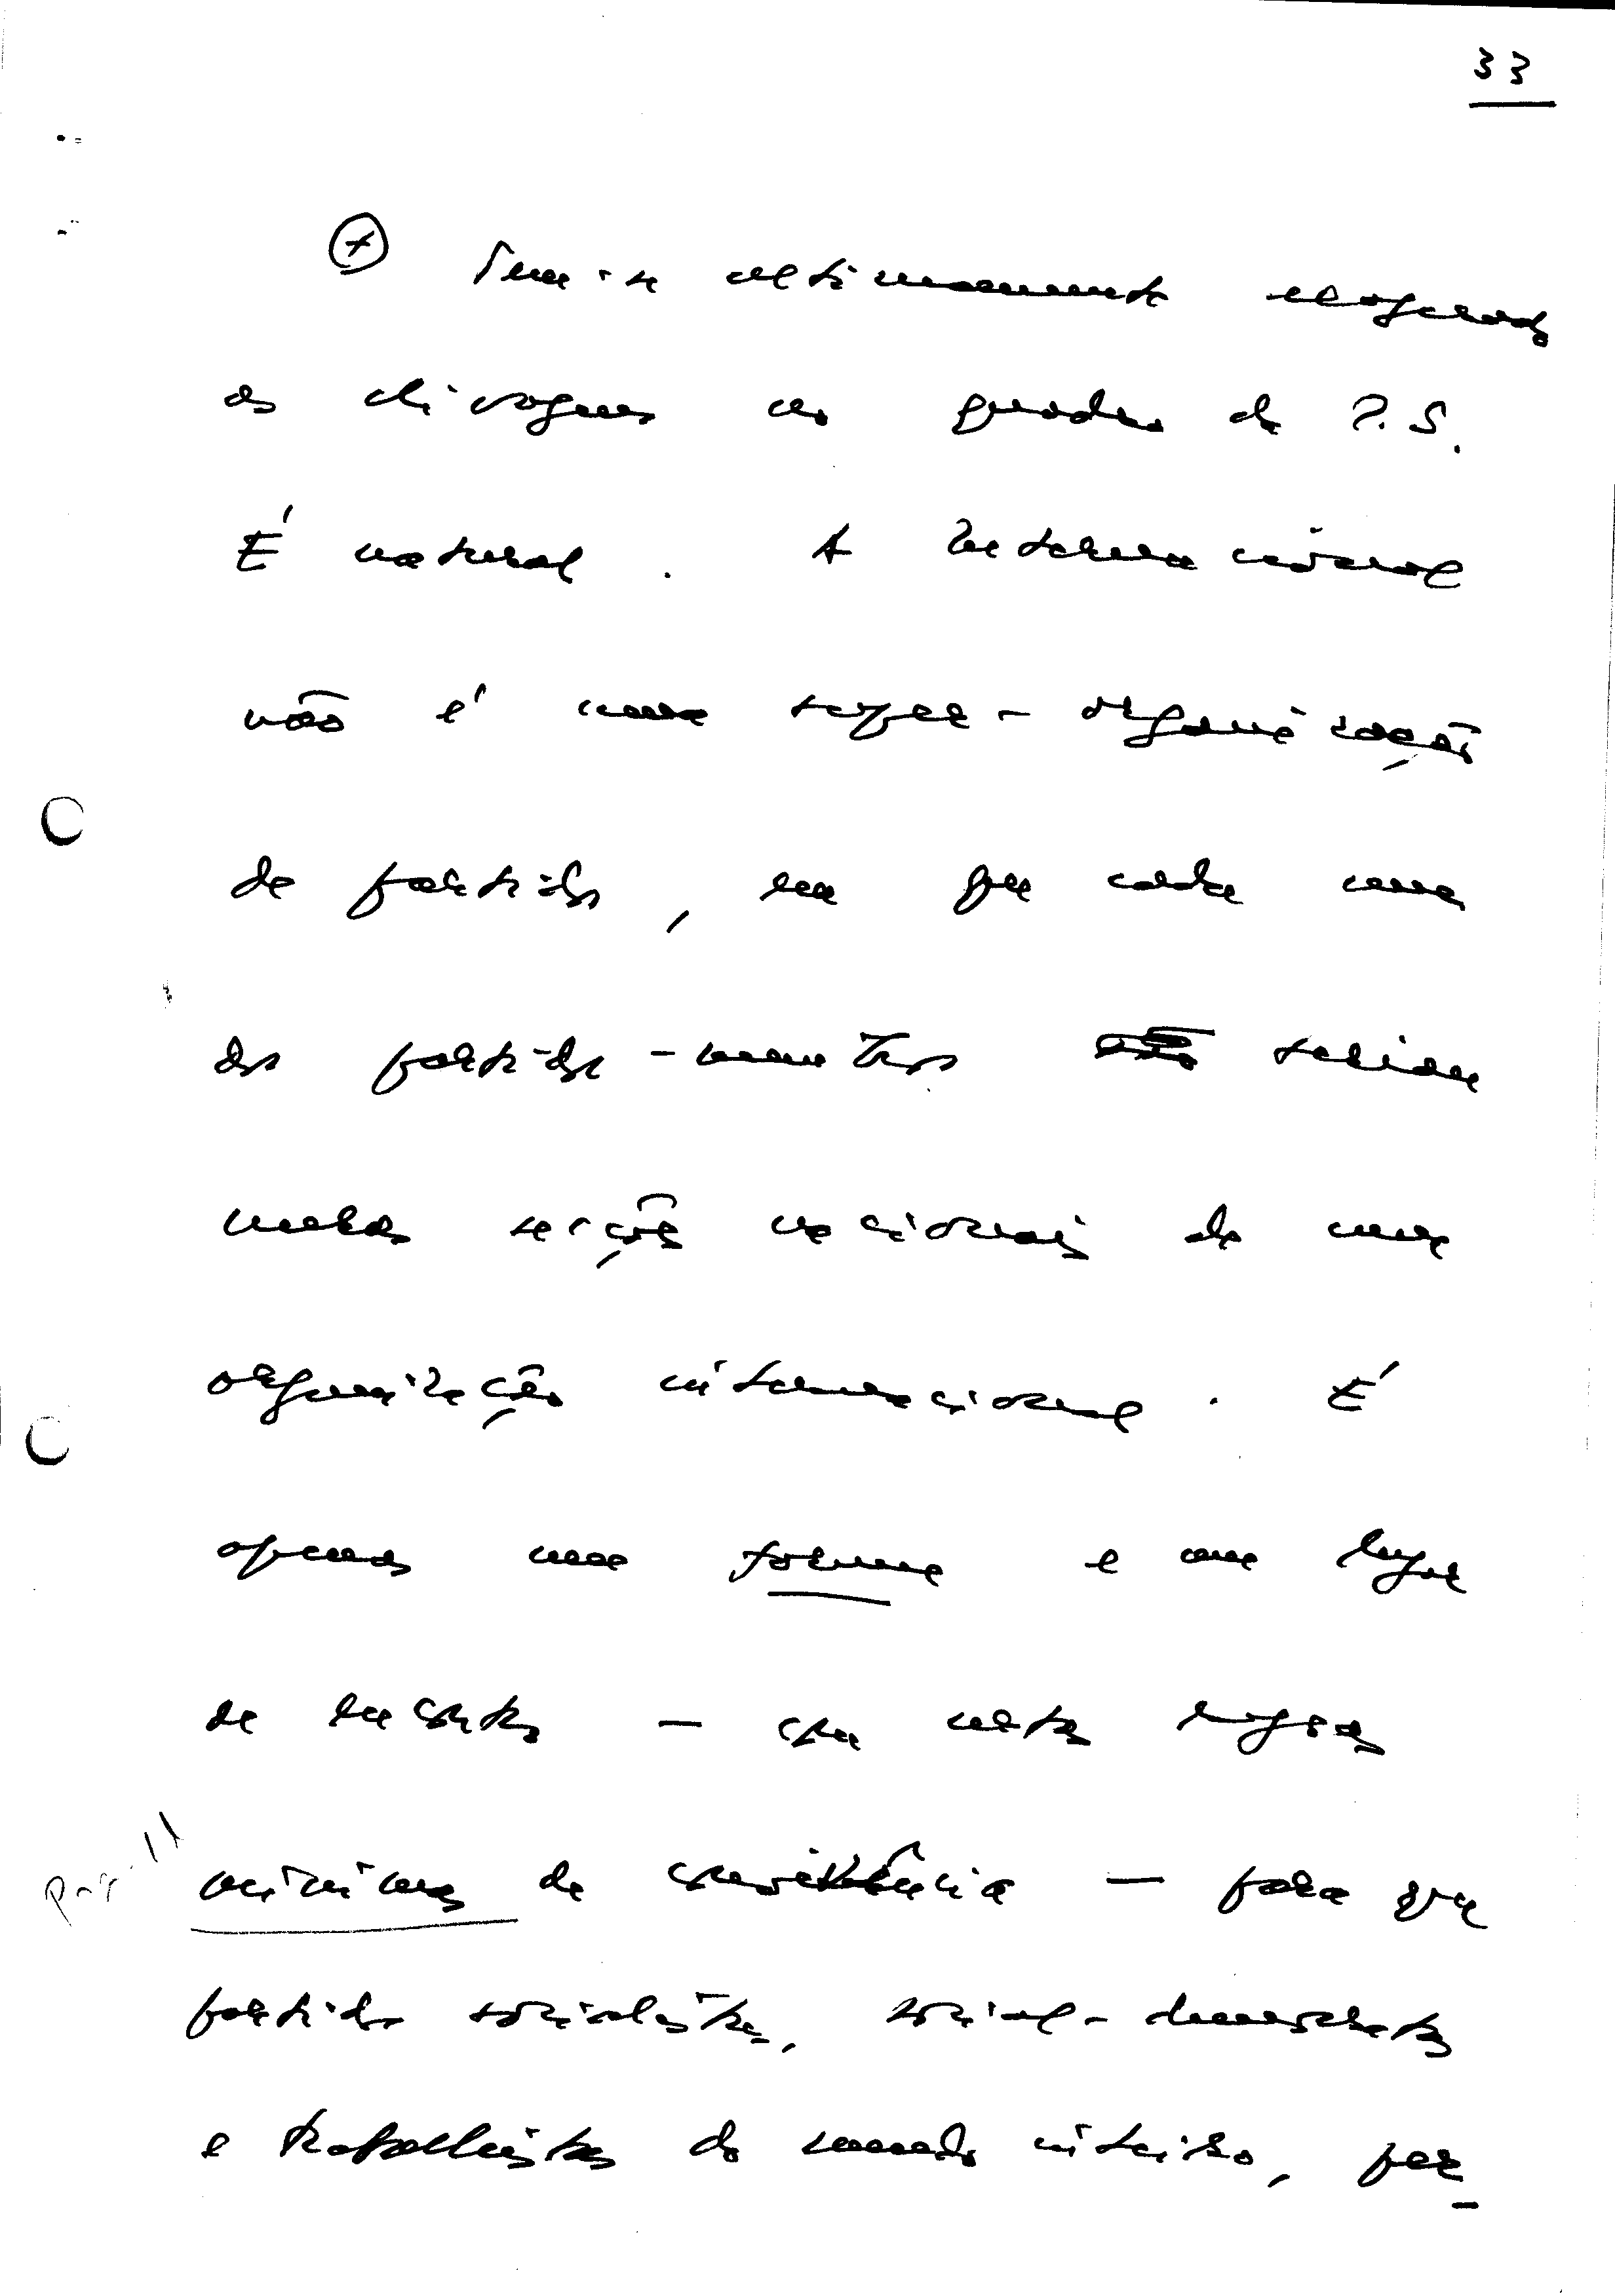 33
Tem-se ultimamente exagerado
as clivagens no quadro da I.S.
É natural. A Internacional
não é uma super-organização
de partidos, em que cada um
dos partidos-membros seriam
meras secções nacionais de uma
organização internacional. É
apenas um forum e um lugar
de encontro — com certas regras
mínimas de convivência — para que
partidos socialistas, social-democratas
e trabalhistas do mundo inteiro, per-